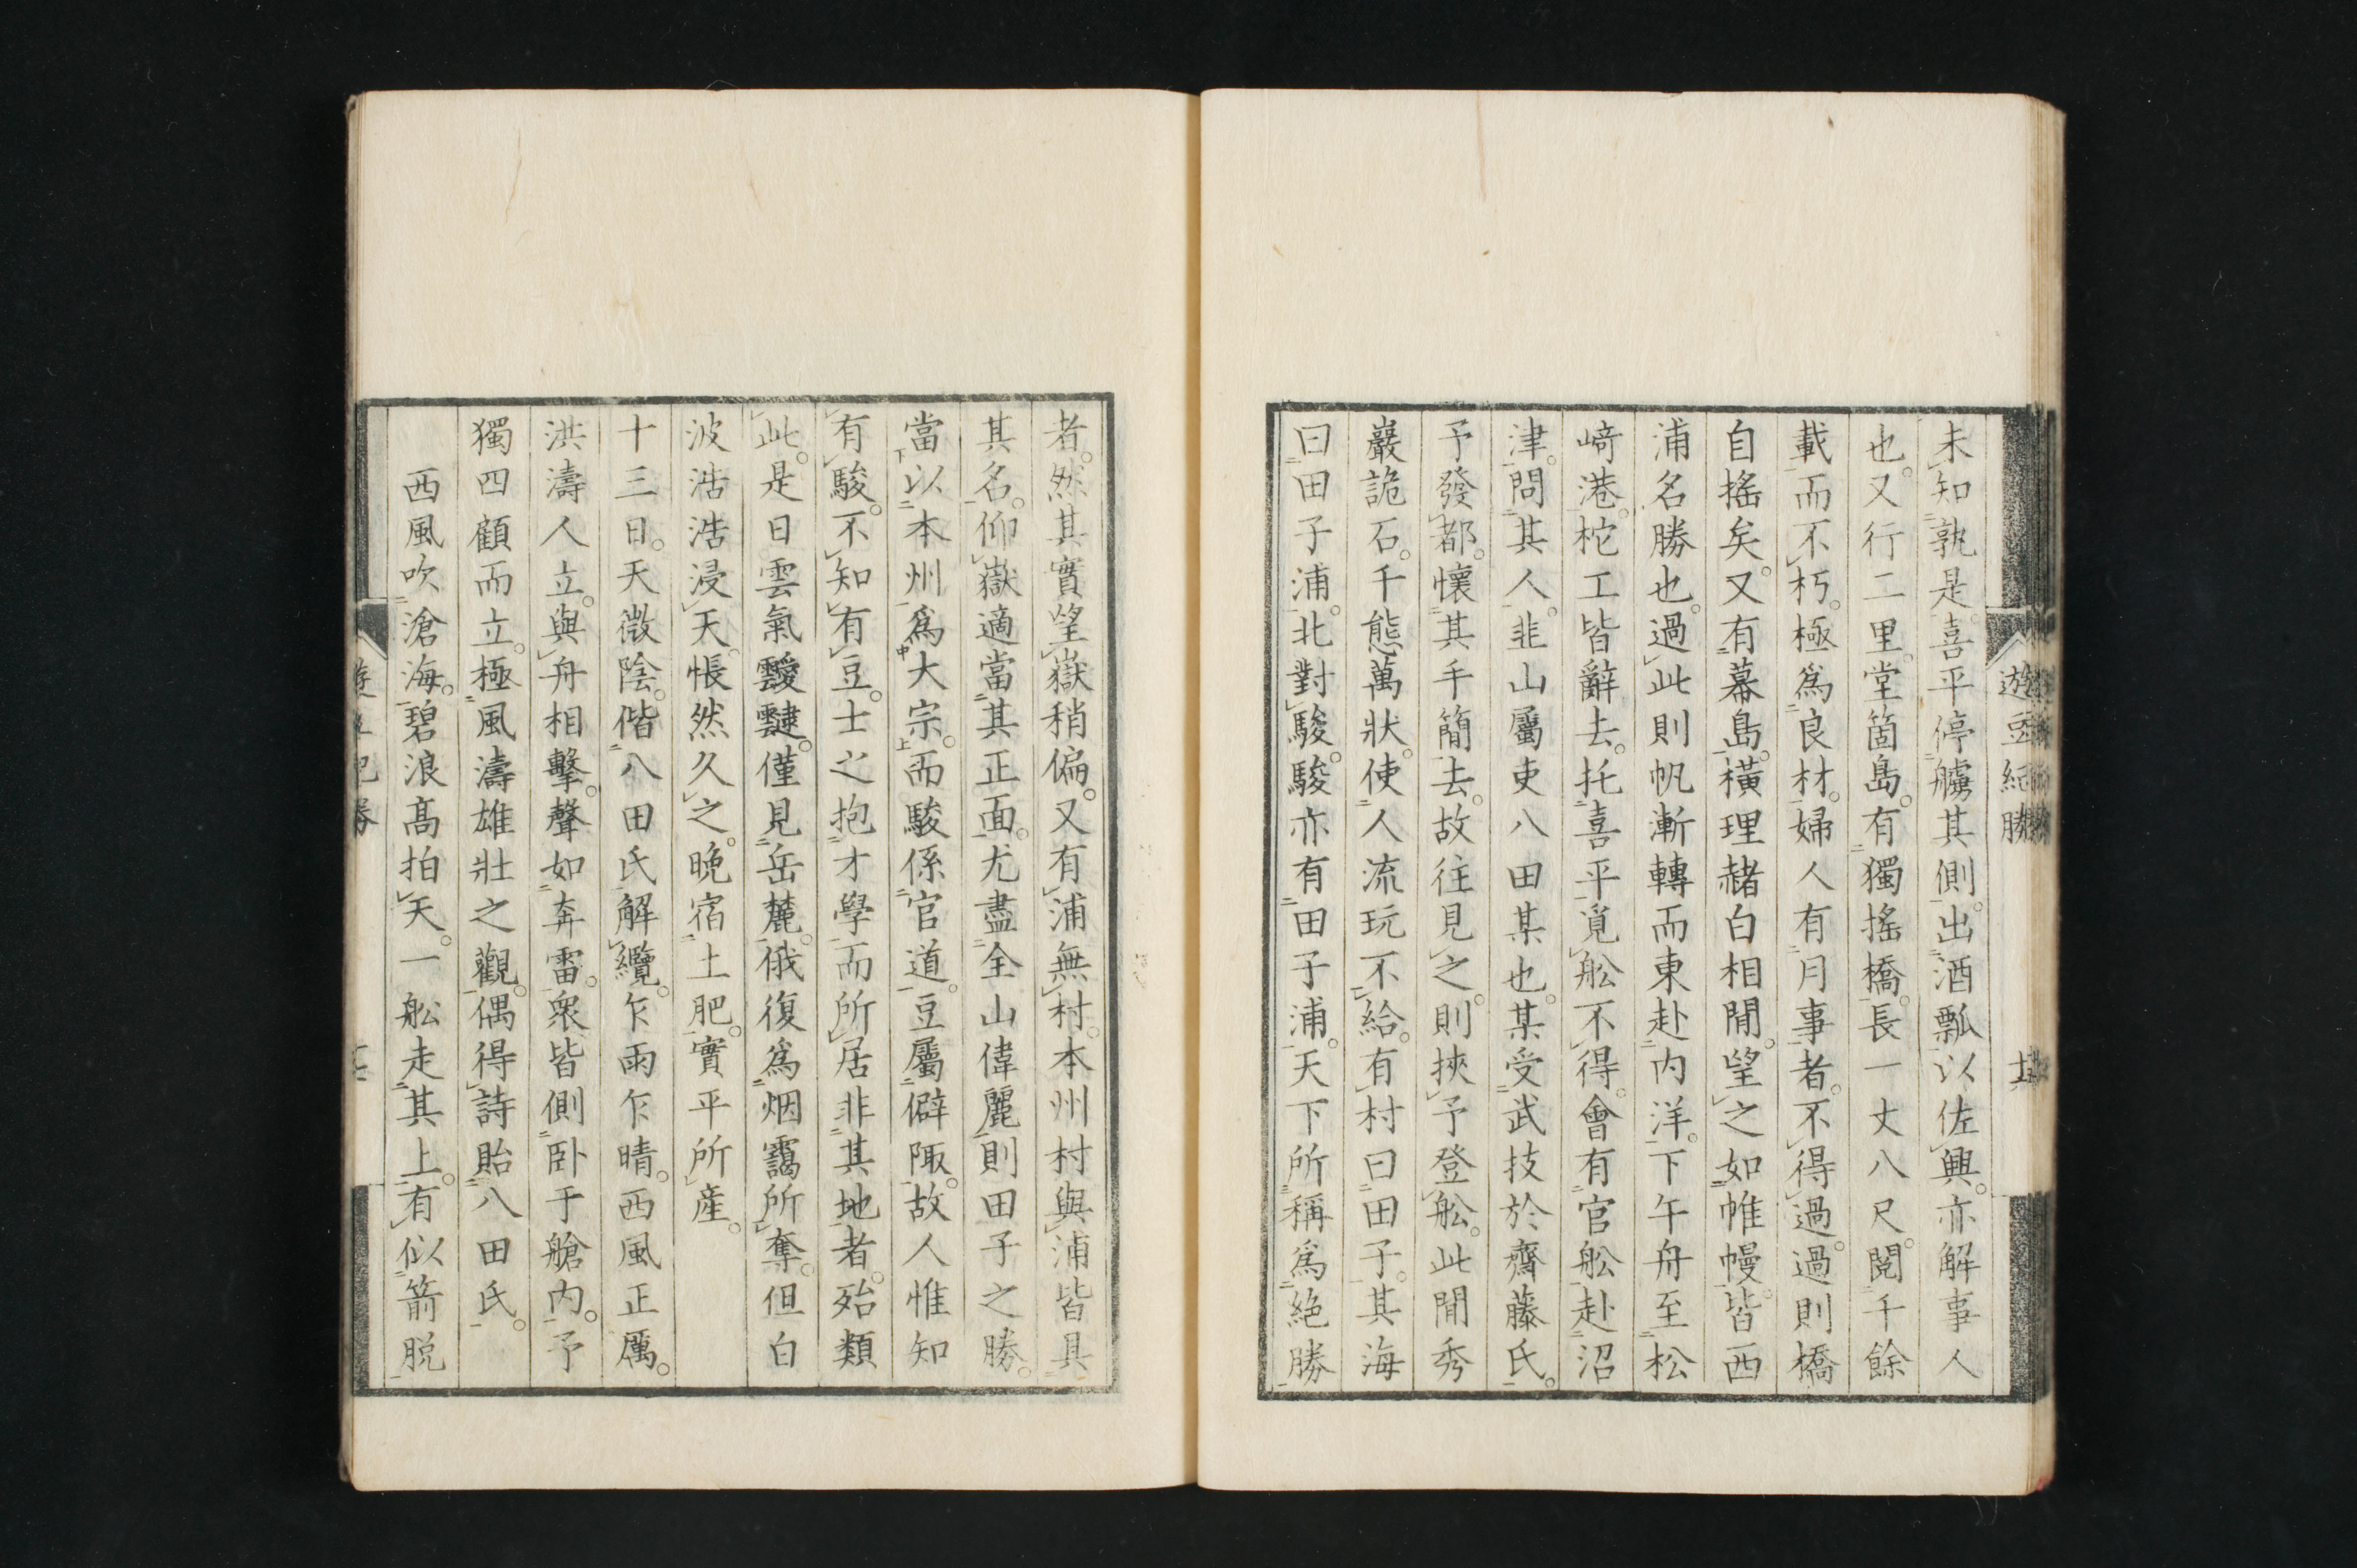 遊豆紀勝
未知孰是。喜平停艣其側。出酒瓢以佐興。亦解事人
也。又行二里。堂箇島。有獨搖橋。長一丈八尺。閱千餘
載而不朽。極爲良材。婦人有月事者。不得過。過則橋
自搖矣。又有幕島。橫理赭白相間。望之如帷幔。皆西
浦名勝也。過此則帆漸轉而東赴内洋。下午舟至松
﨑港。柁工皆辭去。托喜平覓舩不得。會有官舩赴沼
津。問其人。韭山屬吏八田某也。某受武技於齋藤氏。
予發都。懷其手簡去。故往見之。則挾予登舩。此間秀
巖詭石。千態萬狀。使人流玩不給。有村曰田子。其海
曰田子浦。北對駿。駿亦有田子浦。天下所稱爲絶勝
者。然其實望嶽稍偏。又有浦無村。本州村與浦皆具
其名。仰嶽適當其正面。尤盡全山偉麗。則田子之勝。
當以本州爲大宗。而駿係官道。豆屬僻陬。故人惟知
有駿。不知有豆。士之抱才學而所居非其地者。殆類
此。是日雲氣靉靆。僅見岳麓。俄復爲烟靄所奪。但白
波浩浩浸天。悵然久之。晚宿土肥。實平所産。
十三日。天微陰。偕八田氏解纜。乍雨乍晴。西風正厲。
洪濤人立。與舟相擊。聲如奔雷。衆皆側卧于艙内。予
獨四顧而立。極風濤雄壯之觀。偶得詩貽八田氏。
西風吹滄海。碧浪髙拍天。一舩走其上。有似箭脱